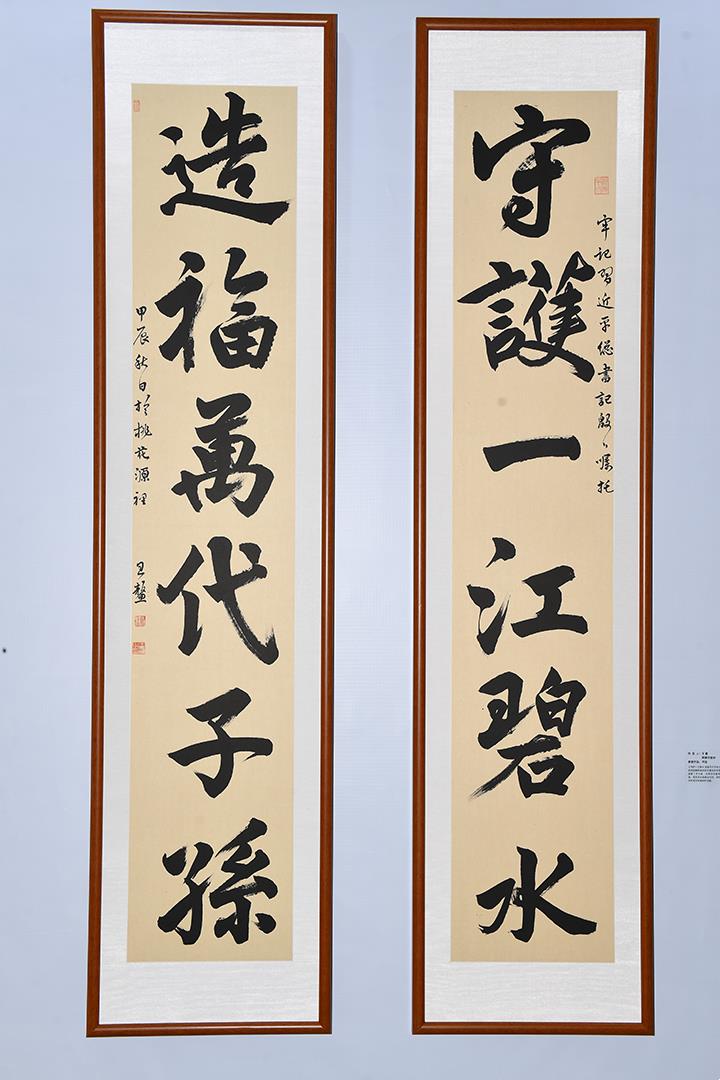 守護一江碧水
牢记習近平總書記殷〻嘱托
造福萬代子孫
甲辰秋日於桃花源裡
王鏊